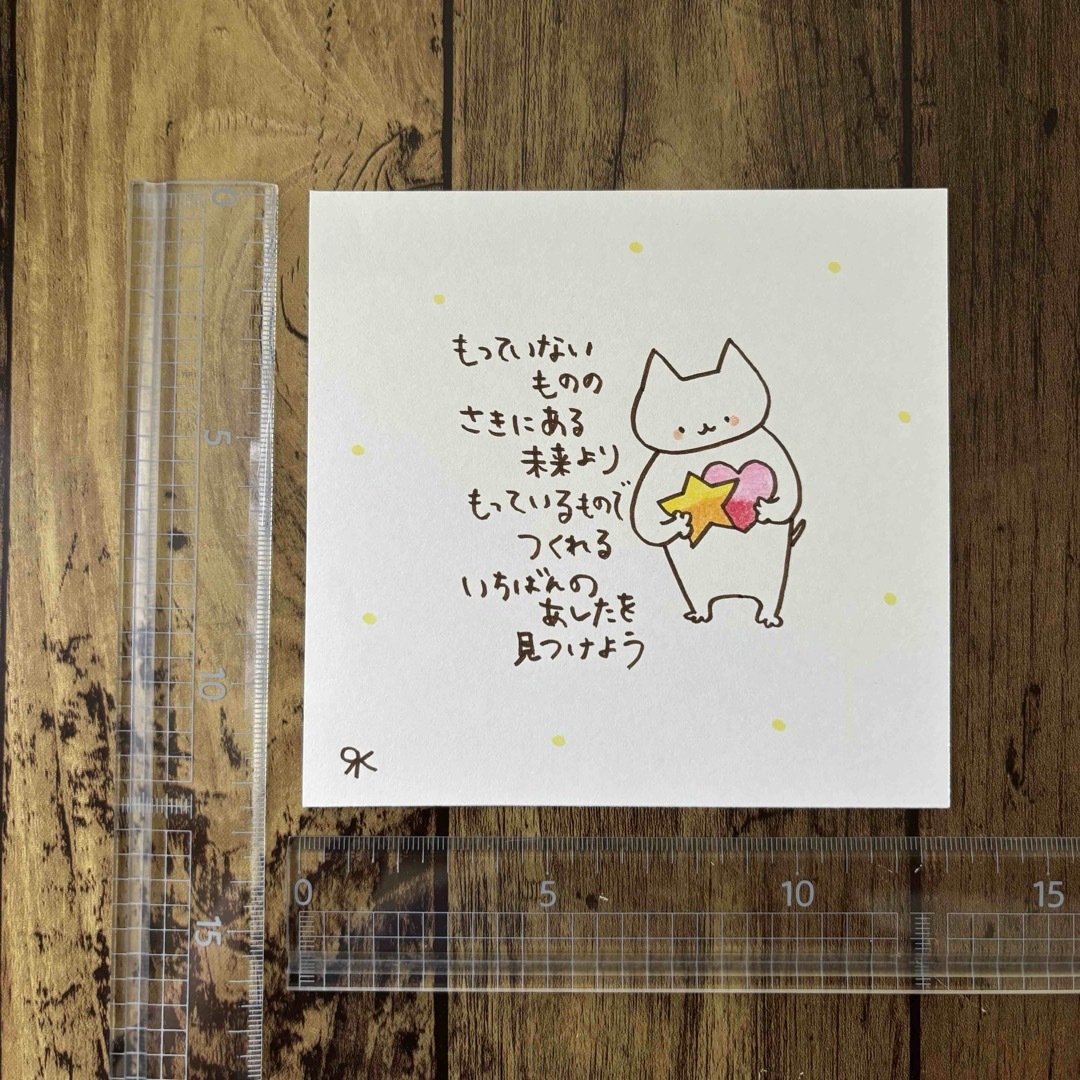 もっていない
ものの
さきにある
未来より
もっているもので
つくれる
いちばんの
あしたを
見つけよう
0
5
10
15
0
5
10
15